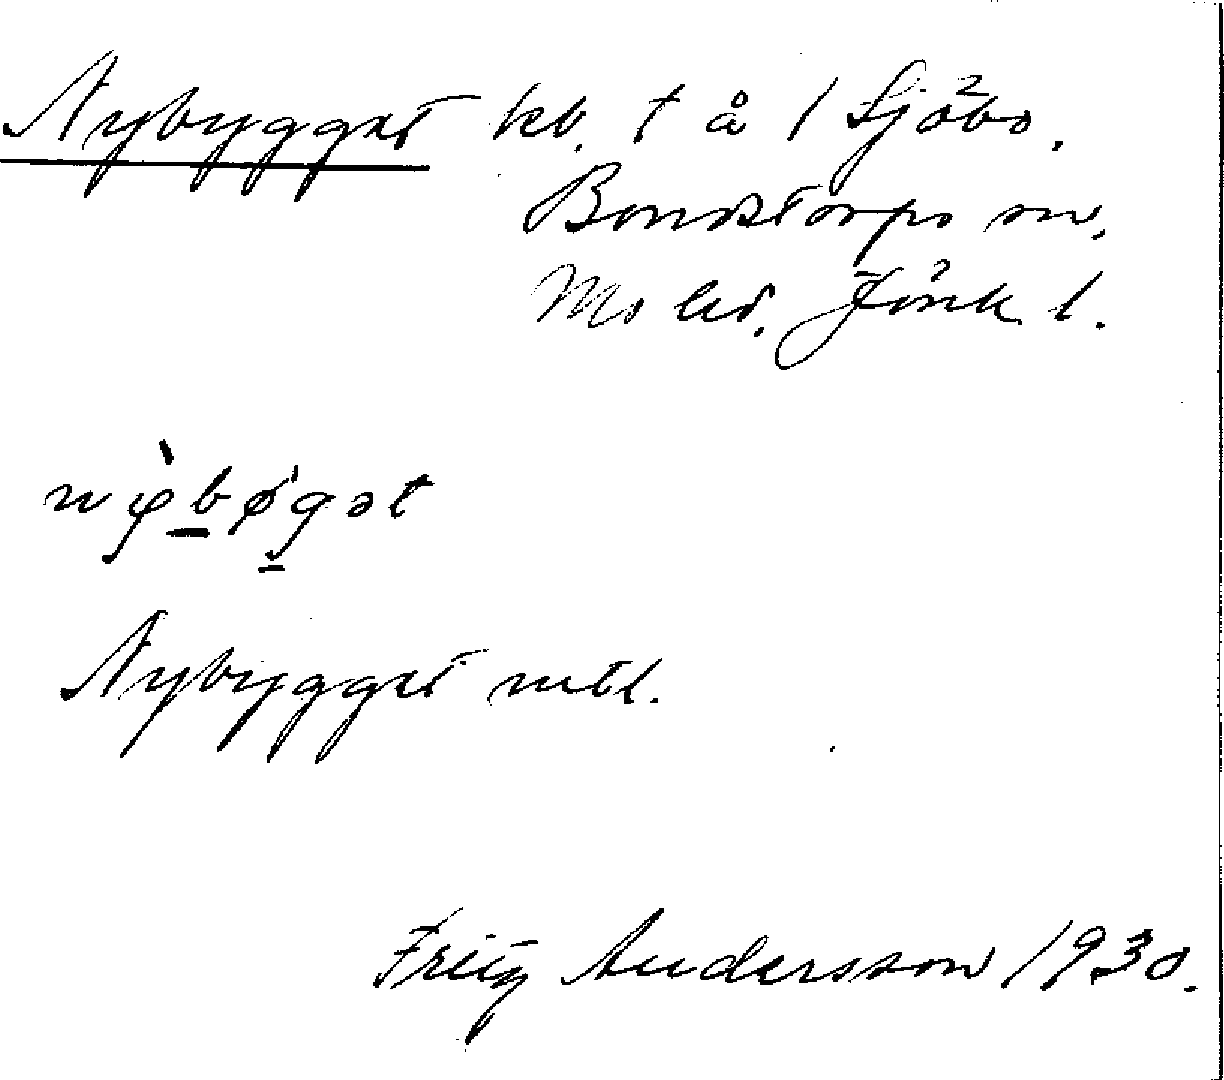 Nybygget kb. † å 1 Sjöbo.
Bondstorps sn.
Mo hd. Jönk l.
nybøgət
Nybygget mtl.
Fritz Andersson 1930.